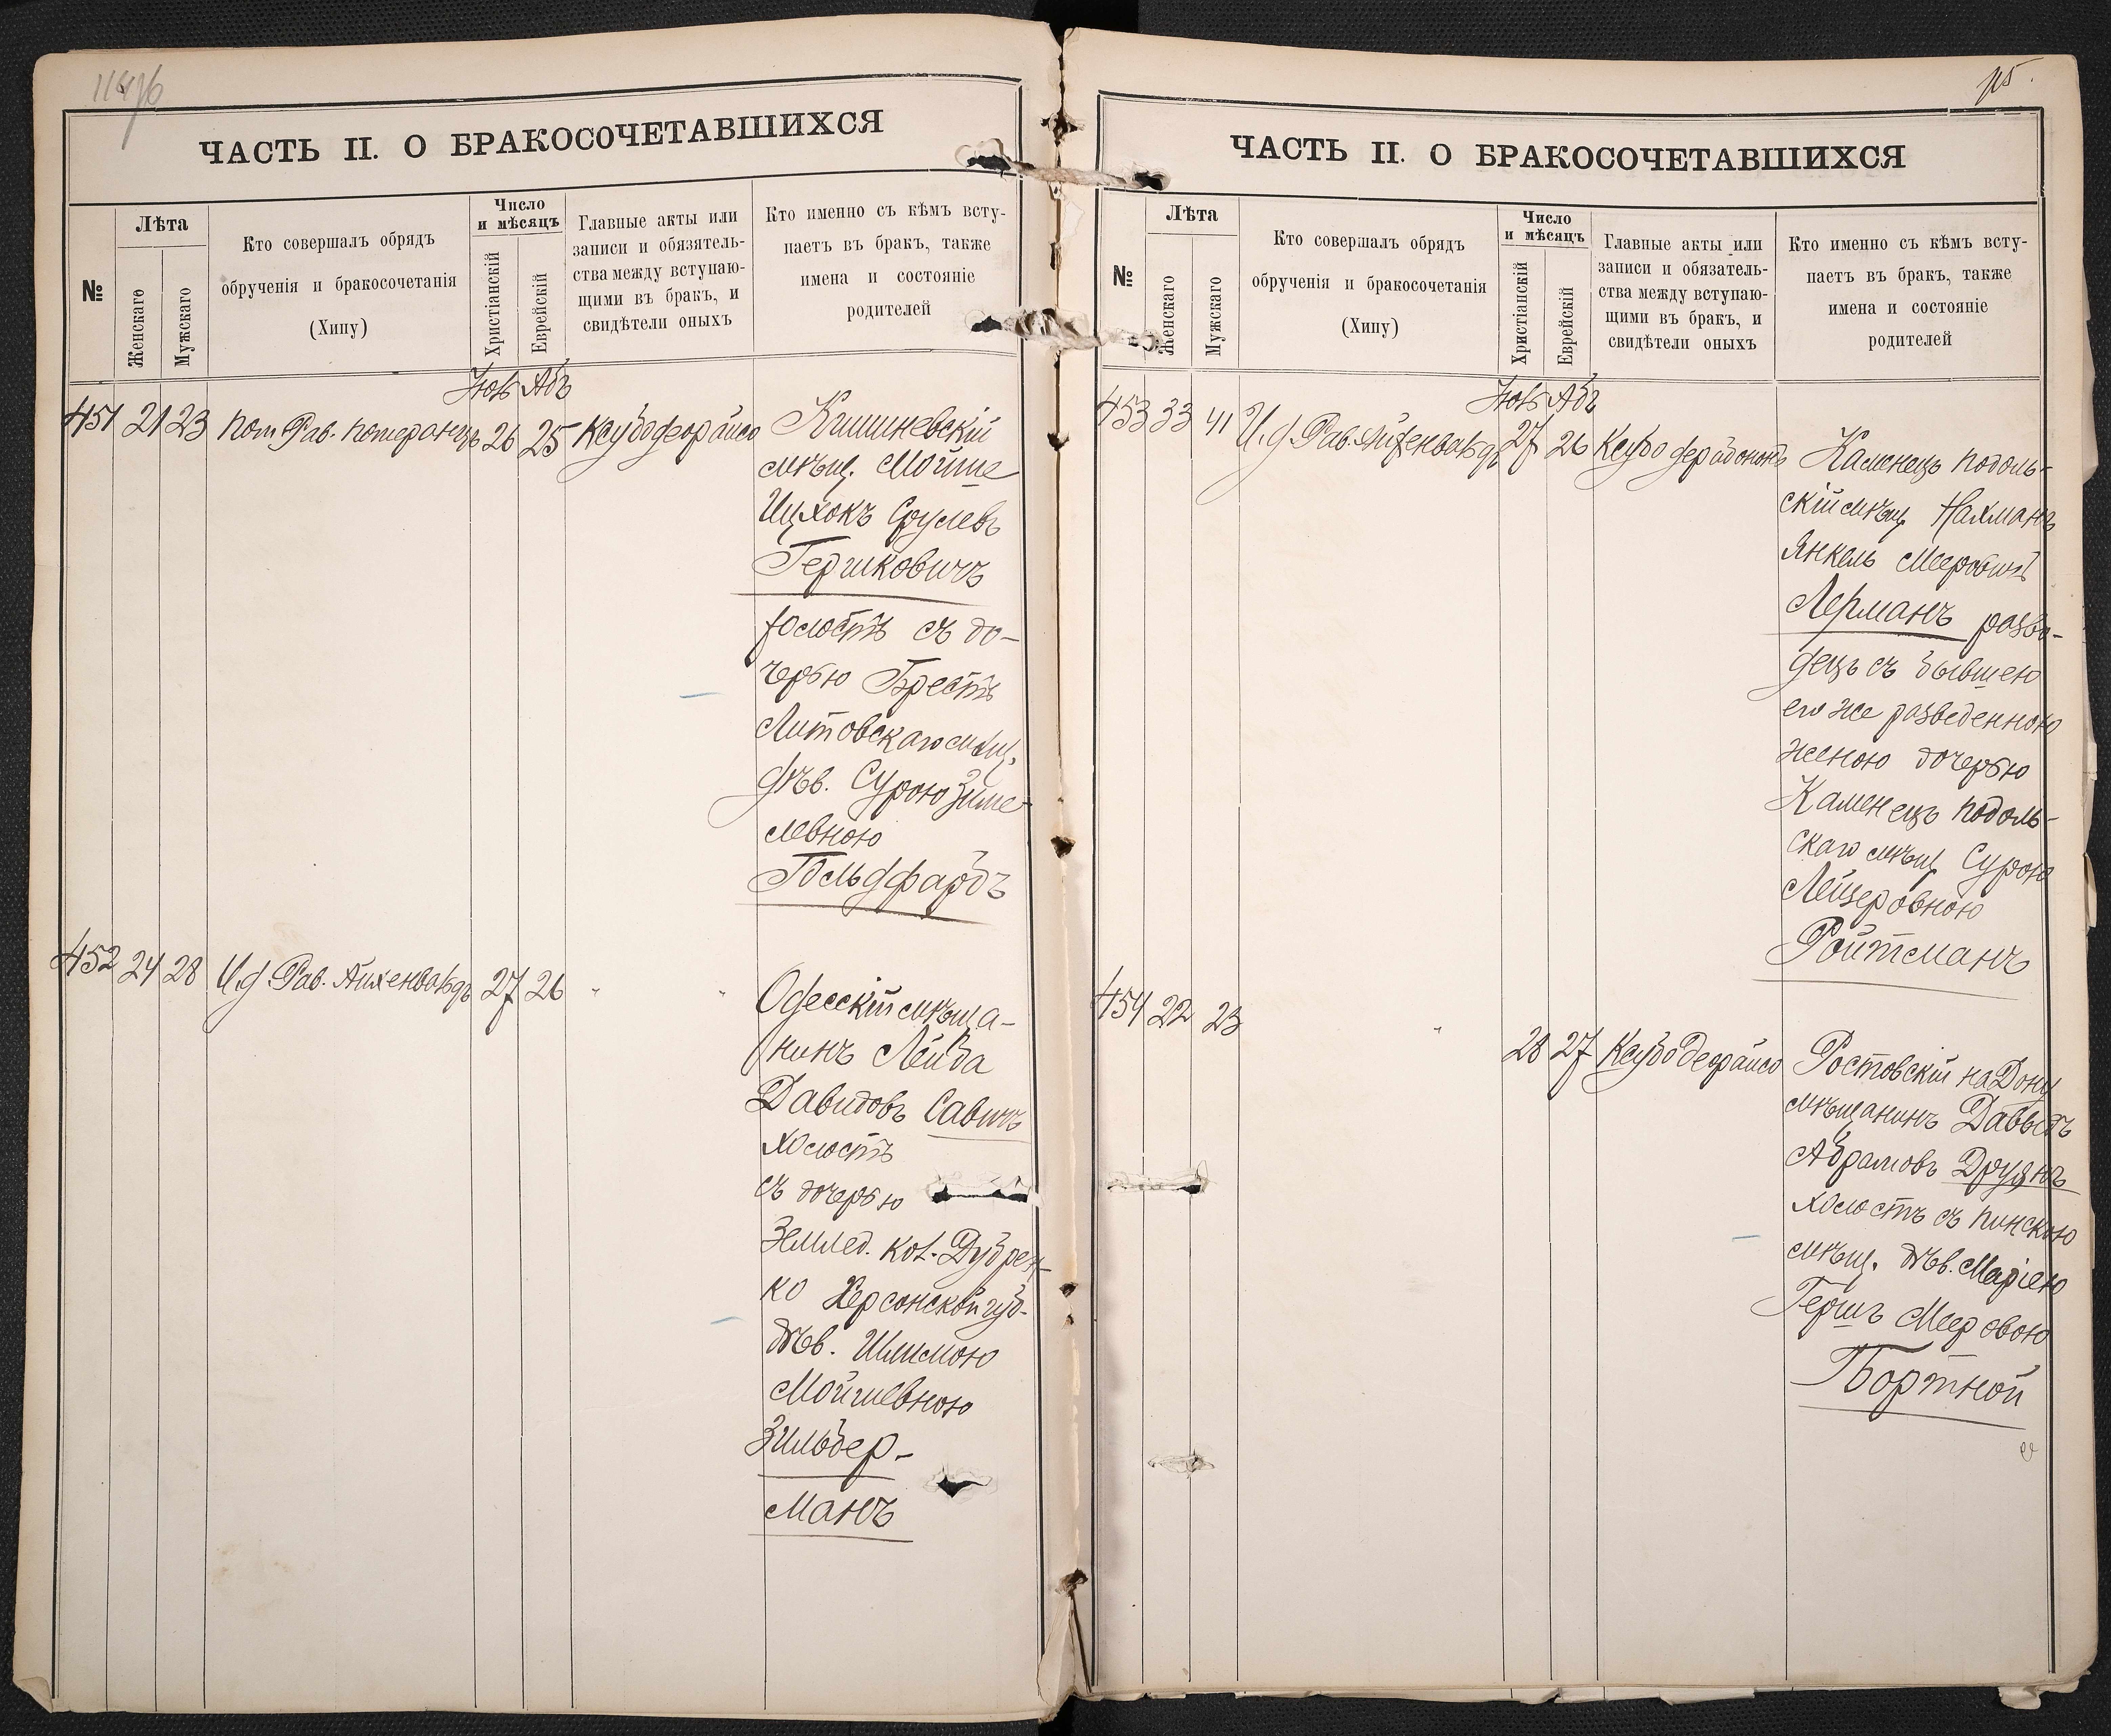 ЧАСТЬ II. О БРАКОСОЧЕТАВШИХСЯ
№
Лѣта
Женскаго
Мужскаго
Кто совершалъ обрядъ
обрученія и бракосочетанія
(Хипу)
Число
и мѣсяцъ
Христіанскій
Еврейскій
Главные акты или
записи и обязатель-
ства между вступаю-
щими въ бракъ, и
свидѣтели оныхъ
Кто именно съ кѣмъ всту-
паетъ въ бракъ, также
имена и состояніе
родителей
Іюль Абъ
451 21 23 Пом. Рав. Померанцъ 26 25 Ксубодеорайсо
Кишиневскій
мѣщ. Мойше
Ицхокъ Срулевъ
Гершковичъ
холостъ съ до-
черью Брестъ
Литовскаго мѣщ.
дѣв. Сурою Зиме
левною
Гольдфарбъ
452 24 28 И.д. Рав. Айхенвальдъ 27 26 " "
Одесскій мѣща-
нинъ Лейба
Давидовъ Савичъ
холостъ
съ дочерью
Землед. кол. Дубрен
ко Херсонской губ.
дѣв. Шлимою
Мойшевною
Зильбер-
манъ
115.
ЧАСТЬ II. О БРАКОСОЧЕТАВШИХСЯ
№
Лѣта
Женскаго
Мужскаго
Кто совершалъ обрядъ
обрученія и бракосочетанія
(Хипу)
Число
и мѣсяцъ
Христіанскій
Еврейскій
Главные акты или
записи и обязатель-
ства между вступаю-
щими въ бракъ, и
свидѣтели оныхъ
Кто именно съ кѣмъ всту-
паетъ въ бракъ, также
имена и состояніе
родителей
Іюль Абъ
453 33 41 И.д. Рав. Айхенвальдъ 27 26 Ксубо
Каменецъ Подоль-
скій мѣщ. Нахманъ
Янкель Мееровичъ
Лерманъ разво-
децъ съ бывшею
его же разведенною
женою дочерью
Каменецъ Подоль-
скаго мѣщ. Сурою
Лейзеровною
Ройтманъ
454 22 23 " 28 27 Ксубодеорайсо
Ростовскій на Дону
мѣщанинъ Давыдъ
Абрамовъ
холостъ съ Пинскою
мѣщ. дѣв. Маріею
Гершъ Мееровою
Бортной